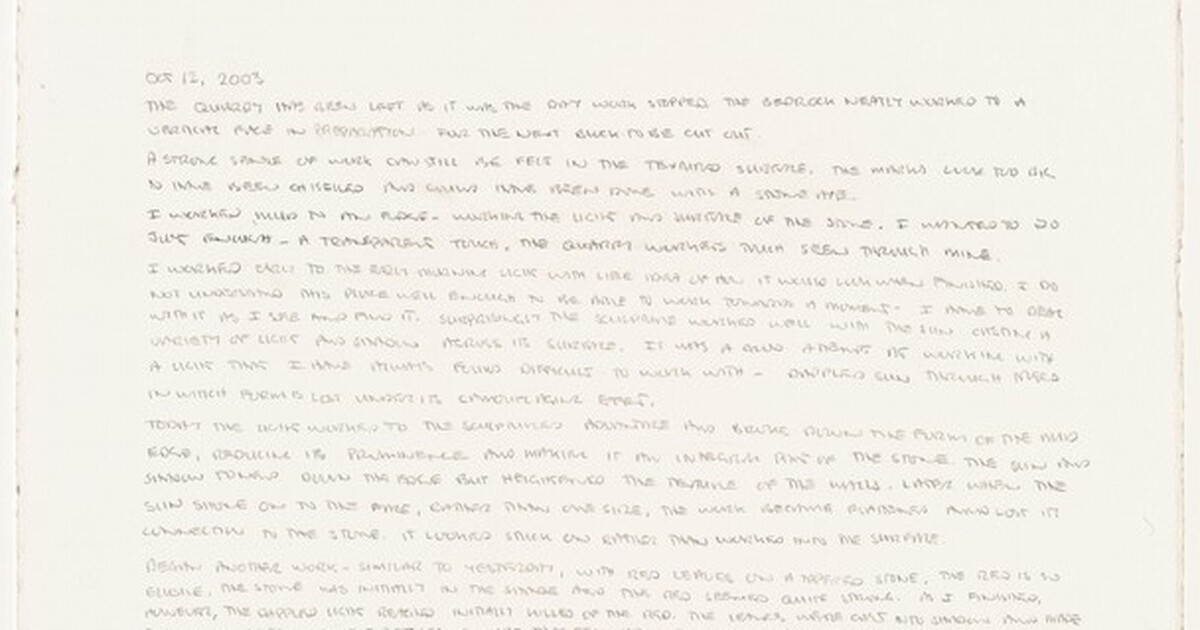 OCT 12, 2003
THE QUARRY HAS BEEN LEFT AS IT WAS THE DAY WORK STOPPED. THE BEDROCK NEATLY WORKED TO A
VERTICAL FACE IN PREPARATION FOR THE NEXT BLOCK TO BE CUT OUT.
A STRONG SENSE OF WORK CAN STILL BE FELT IN THE TEXTURED SURFACE. THE MARKS LOOK TOO BIG
TO HAVE BEEN CHISELLED AND COULD HAVE BEEN DONE WITH A STONE AXE.
I WORKED MUD TO AN EDGE - WORKING THE LIGHT AND SURFACE OF THE STONE. I WANTED TO DO
JUST ENOUGH - A TRANSPARENT TOUCH, THE QUARRY WORKERS TOUCH SEEN THROUGH MINE.
I WORKED EARLY TO THE EARLY MORNING LIGHT WITH LITTLE IDEA OF HOW IT WOULD LOOK WHEN FINISHED. I DO
NOT UNDERSTAND THIS PLACE WELL ENOUGH TO BE ABLE TO WORK TOWARDS A MOMENT - I HAVE TO DEAL
WITH IT AS I SEE AND FIND IT. SURPRISINGLY THE SCULPTURE WORKED WELL WITH THE SUN CASTING A
VARIETY OF LIGHT AND SHADOW ACROSS ITS SURFACE. IT WAS A WORKING WITH
A LIGHT THAT I HAVE ALWAYS FOUND DIFFICULT TO WORK WITH - DAPPLED SUN THROUGH TREES
IN WHICH FORM IS LOST UNDER ITS CAMOUFLAGING EFFECT.
TODAY THE LIGHT WORKED TO THE SCULPTURES ADVANTAGE AND BROKE DOWN THE FORM OF THE MUD
EDGE, REDUCING ITS PROMINENCE AND MAKING IT AN INTEGRAL PART OF THE STONE. THE SUN AND
SHADOW TONED DOWN THE EDGE BUT HEIGHTENED THE TEXTURE OF THE WALL. LATER WHEN THE
SUN SHONE ON TO THE FACE, RATHER THAN ONE SIDE, THE WORK BECAME FLATTENED AND LOST ITS
CONNECTION TO THE STONE. IT LOOKED STUCK ON RATHER THAN WORKED INTO THE SURFACE.
BEGAN ANOTHER WORK - SIMILAR TO YESTERDAY, WITH RED LEAVES ON A STONE. THE RED IS SO
ELUSIVE. THE STONE WAS INITIALLY IN THE SHADE AND THE RED SEEMED QUITE STRONG. AS I FINISHED,
HOWEVER, THE DAPPLED LIGHT INITIALLY KILLED OFF THE RED. THE LEAVES WERE CAST INTO SHADOW AND